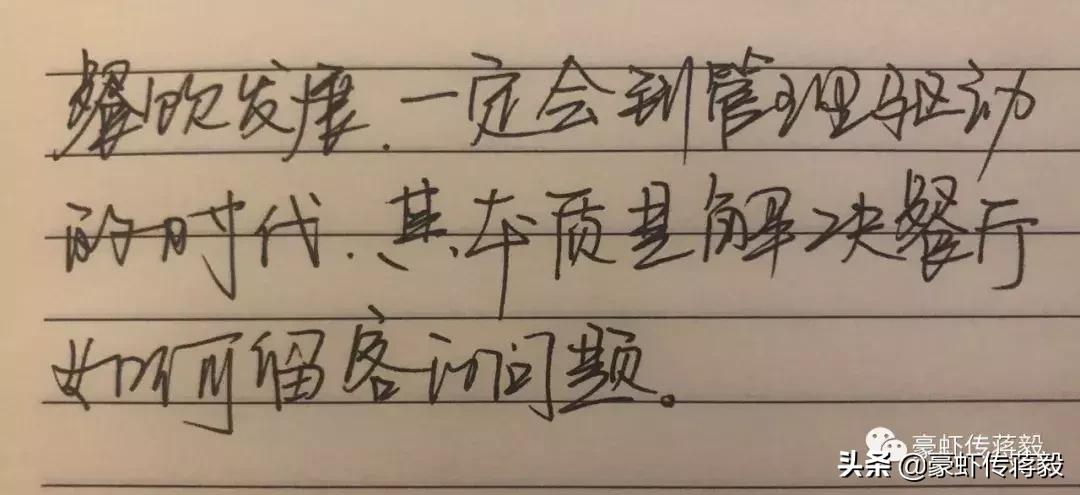 餐饮发展.一定会到管理驱动
的时代.其本质是解决餐厅
如何留客的问题。
豪虾传蒋毅
头条@豪虾传蒋毅